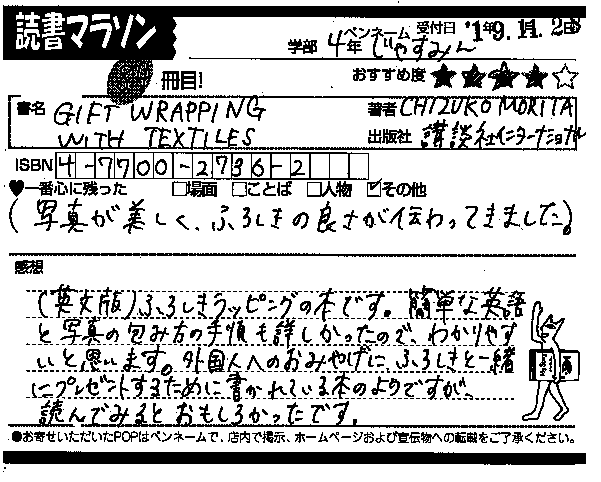 読書マラソン
学部 4年 ペンネーム じゃすみん 受付日 '19.11.2
冊目! おすすめ度 ★★★★☆
書名 GIFT WRAPPING WITH TEXTILES
著者 CHIZUKO MORITA
出版社 講談社インターナショナル
ISBN 4-7700-2736-2
♥一番心に残った □場面 □ことば □人物 ☑その他
(写真が美しく、ふろしきの良さが伝わってきました。)
感想
(英文版)ふろしきラッピングの本です。簡単な英語
と写真の包み方の手順も詳しかったので、わかりやす
いと思います。外国人へのおみやげに、ふろしきと一緒
にプレゼントするために書かれている本のようですが、
読んでみるとおもしろかったです。
●お寄せいただいたPOPはペンネームで、店内で掲示、ホームページおよび宣伝物への転載をご了承ください。